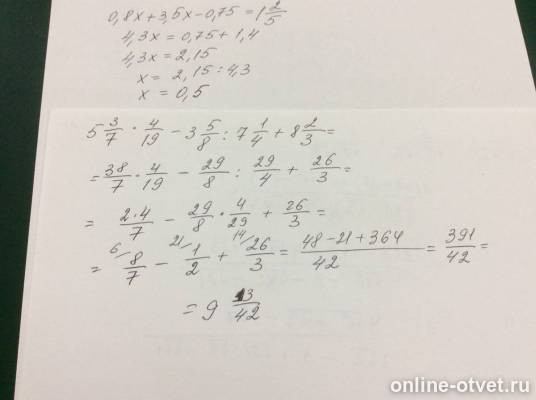 0,8x+3,5x-0,75=1 2/5
4,3x=0,75+1,4
4,3x=2,15
x= 2,15:4,3
x= 0,5
5 3/7 · 4/19 - 3 5/8 : 7 1/4 + 8 2/3 =
= 38/7 · 4/19 - 29/8 : 29/4 + 26/3 =
= 2·4/7 - 29/8 · 4/29 + 26/3 =
= 6/ 8/7 - 21/ 1/2 + 14/ 26/3 = 48-21+364/42 = 391/42 =
= 9 13/42
online-otvet.ru